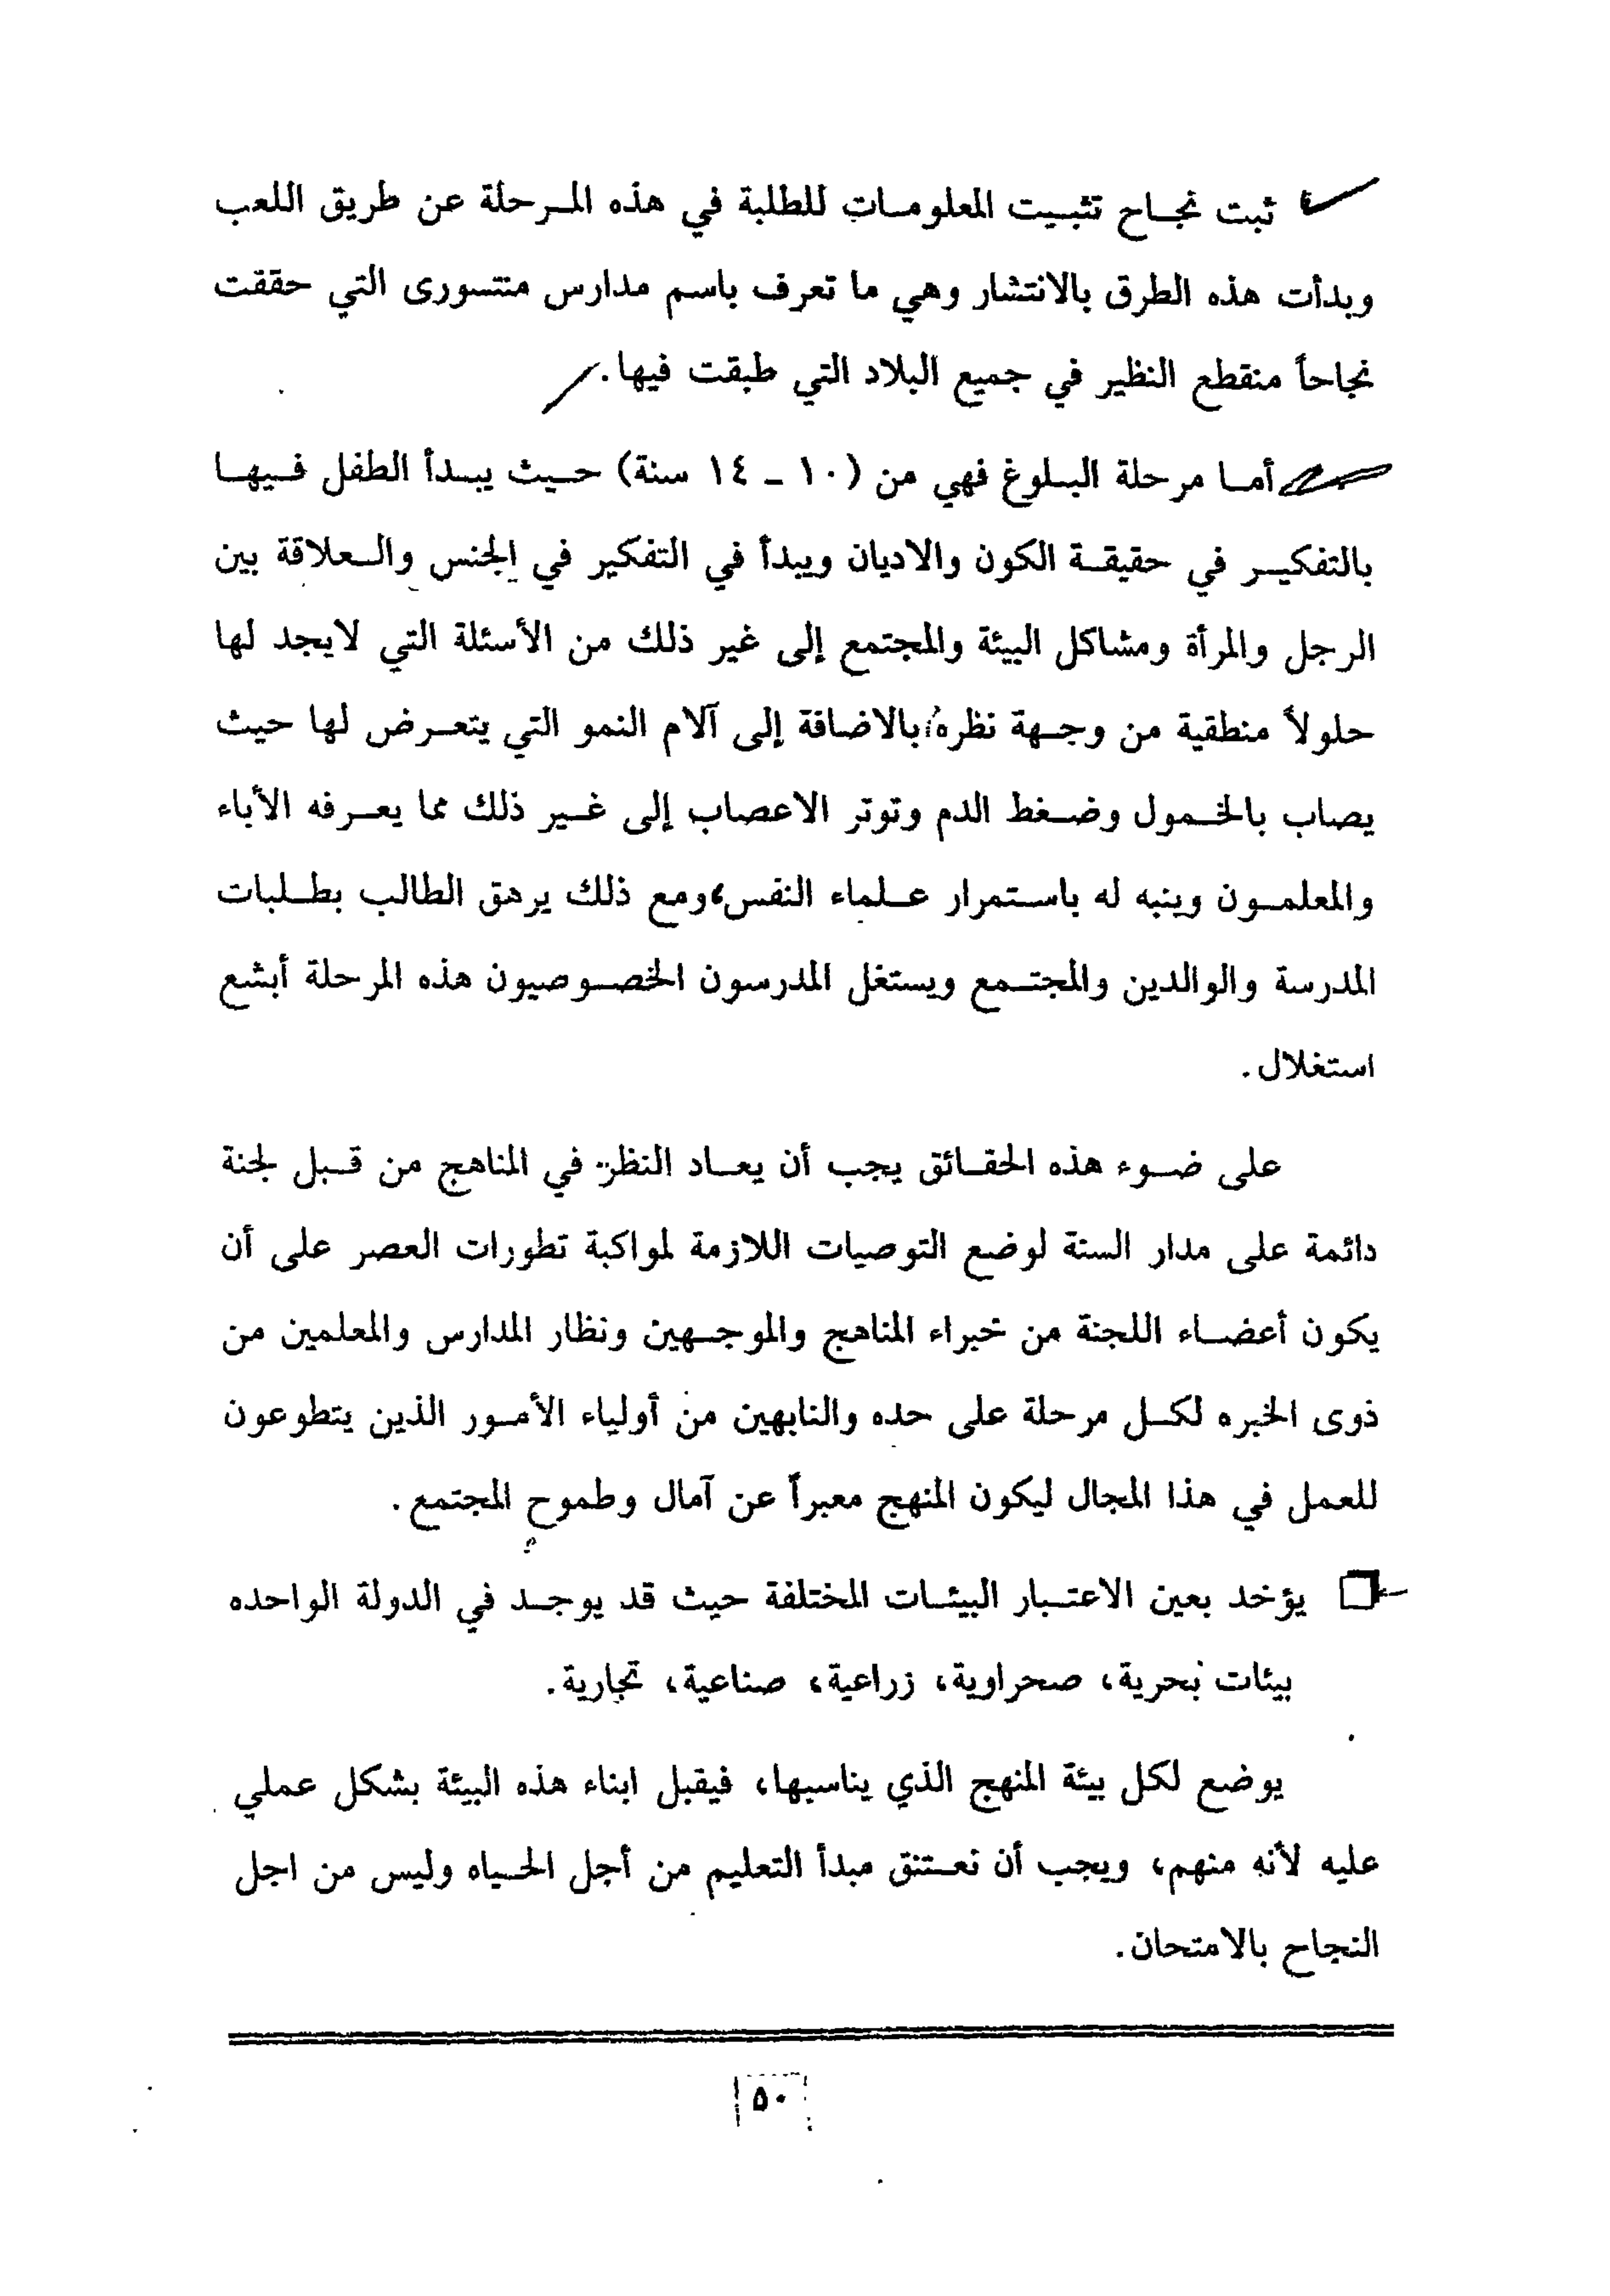 ثبت نجاح تثبيت المعلومات للطلبة في هذه المرحلة عن طريق اللعب
وبدأت هذه الطرق بالانتشار وهي ما تعرف باسم مدارس منتسورى التي حققت
نجاحاً منقطع النظير في جميع البلاد التي طبقت فيها.
أما مرحلة البلوغ فهي من (١٠ - ١٤ سنة) حيث يبدأ الطفل فيها
بالتفكير في حقيقة الكون والاديان ويبدأ في التفكير في الجنس والعلاقة بين
الرجل والمرأة ومشاكل البيئة والمجتمع إلى غير ذلك من الأسئلة التي لايجد لها
حلولاً منطقية من وجهة نظره، بالاضافة إلى آلام النمو التي يتعرض لها حيث
يصاب بالخمول وضغط الدم وتوتر الاعصاب إلى غير ذلك مما يعرفه الأباء
والمعلمون وينبه له باستمرار علماء النفس، ومع ذلك يرهق الطالب بطلبات
المدرسة والوالدين والمجتمع ويستغل المدرسون الخصوصيون هذه المرحلة أبشع
استغلال.
على ضوء هذه الحقائق يجب أن يعاد النظر في المناهج من قبل لجنة
دائمة على مدار السنة لوضع التوصيات اللازمة لمواكبة تطورات العصر على أن
يكون أعضاء اللجنة من خبراء المناهج والموجهين ونظار المدارس والمعلمين من
ذوى الخبره لكل مرحلة على حده والنابهين من أولياء الأمور الذين يتطوعون
للعمل في هذا المجال ليكون المنهج معبراً عن آمال وطموح المجتمع.
يؤخد بعين الاعتبار البيئات المختلفة حيث قد يوجد في الدولة الواحده
بيئات بحرية، صحراوية، زراعية، صناعية، تجارية.
يوضع لكل بيئة المنهج الذي يناسبها، فيقبل ابناء هذه البيئة بشكل عملي
عليه لأنه منهم، ويجب أن نعتنق مبدأ التعليم من أجل الحياه وليس من اجل
النجاح بالامتحان.
٥٠